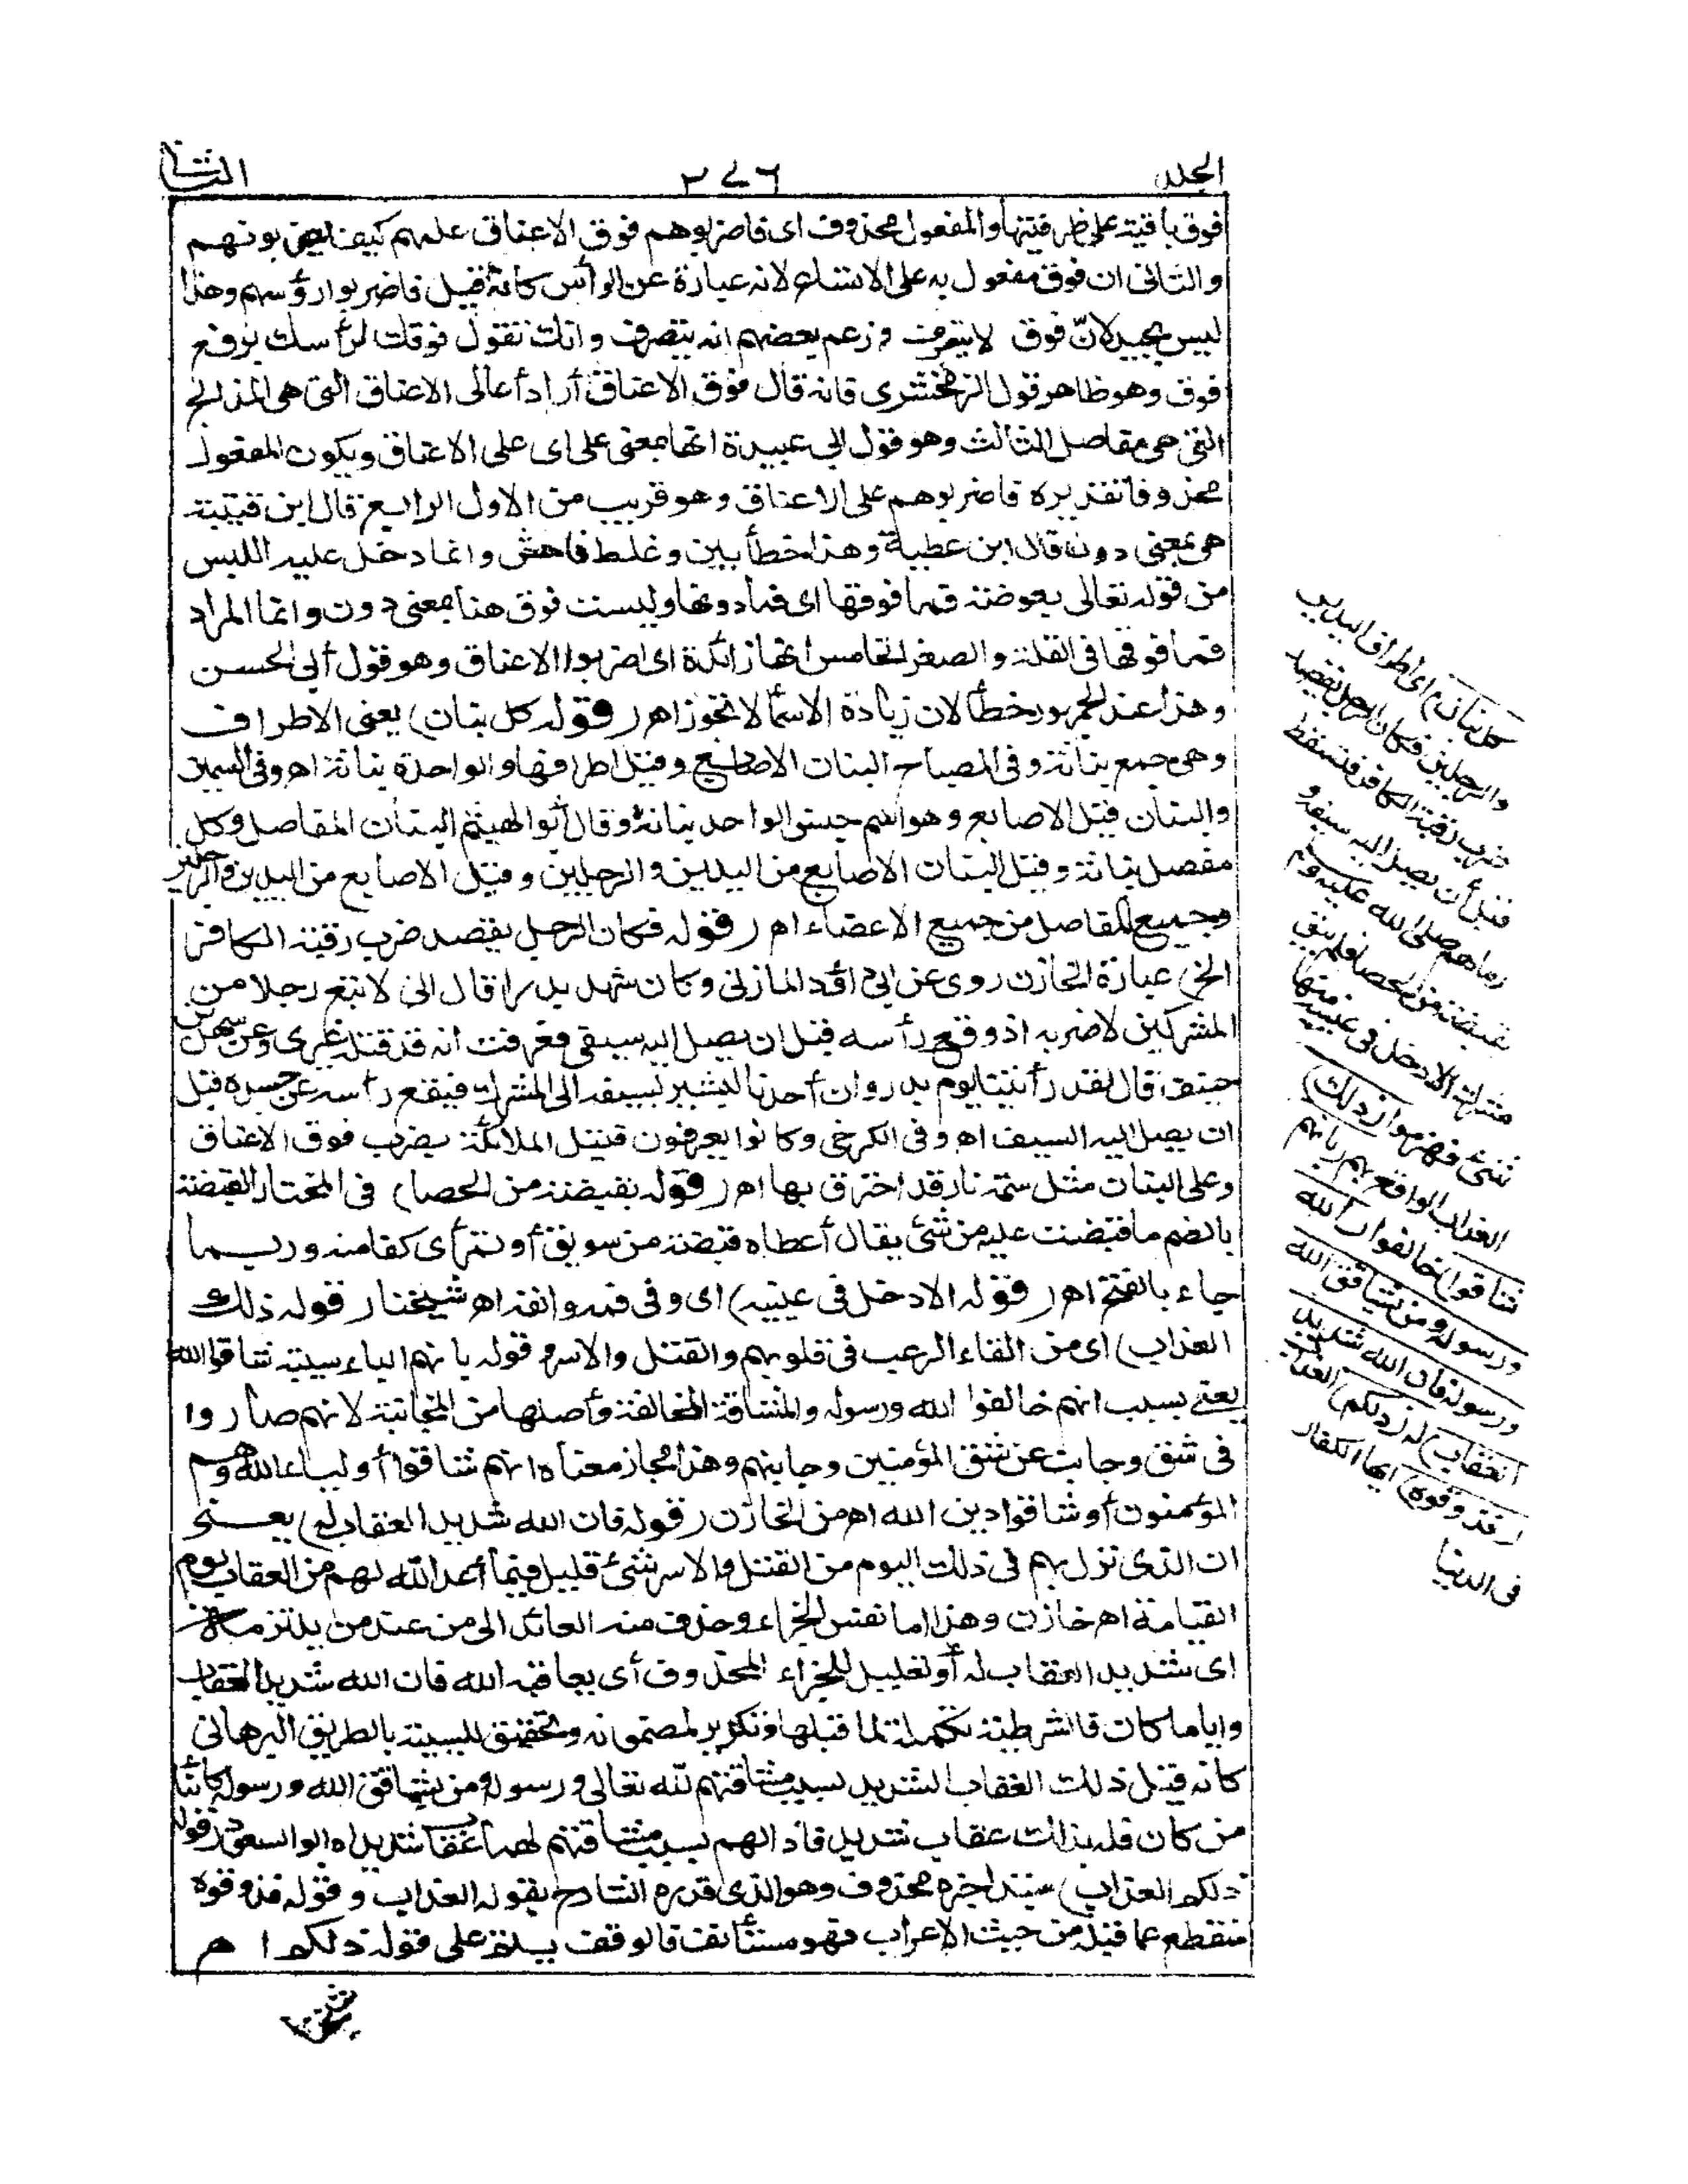 الجلد ٢٧٦ الثانى
فوق باقية على ظرفيتها والمفعول محذوف اى فاضربوهم فوق الاعناق علمهم كيف يضربونهم
والثانى ان فوق مفعول به على الاتساع لانه عبارة عن الرأس كأنه قيل فاضربوا رؤسهم وهذا
ليس بجيد لانّ فوق لا يتصرف وزعم بعضهم انه يتصرف وانك تقول فوقك رأسك برفع
فوق وهو ظاهر قول الزمخشرى فانه قال فوق الاعناق أراد أعالى الاعناق التى هى المذابح
التى هى مفاصل الثالث وهو قول ابى عبيدة انها بمعنى على اى على الاعناق ويكون المفعول
محذوفا تقديره فاضربوهم على الاعناق وهو قريب من الاول الرابع قال ابن قتيبة
هى بمعنى دون قال ابن عطية وهذا خطأ بين وغلط فاحش وانما دخل عليه اللبس
من قوله تعالى بعوضة فما فوقها اى فما دونها وليست فوق هنا بمعنى دون وانما المراد
فما فوقها فى القلة والصغر الخامس انها زائدة اى اضربوا الاعناق وهو قول أبى الحسن
وهذا عند الجمهور خطأ لان زيادة الاسماء لا تجوز اهـ (قوله كل بنان) يعنى الاطراف
وهى جمع بنانة وفى المصباح البنان الاصابع وقيل اطرافها والواحدة بنانة اهـ وفى السمين
والبنان قيل الاصابع وهو اسم جنس الواحد بنانة وقال أبو الهيثم البنان المفاصل وكل
مفصل بنانة وقيل البنان الاصابع من اليدين والرجلين وقيل الاصابع من اليدين والرجلين
وجميع المفاصل من جميع الاعضاء اهـ (قوله فكان الرجل يقصد ضرب رقبة الكافر
الخ) عبارة الخازن روى عن ابى داود المازنى وكان شهد بدرا قال انى لا تبع رجلا من
المشركين لاضربه اذ وقع رأسه قبل ان يصل اليه سيفى فعرفت انه قد قتله غيرى وعن سهل بن
حنيف قال لقد رأيتنا يوم بدر وان أحدنا ليشير بسيفه الى المشرك فيقع رأسه عن جسده قبل
ان يصل اليه السيف اهـ وفى الكرخى وكانوا يعرفون قتيل الملائكة بضرب فوق الاعناق
وعلى البنان مثل سمة نار قد احترق بها اهـ (قوله بقبضة من الحصا) فى المختار القبضة
بالضم ما قبضت عليه من شئ يقال أعطاه قبضة من سويق أو تمر أى كفا منه وربما
جاء بالفتح اهـ (قوله الا دخل فى عينيه) اى وفى فمه وانفه اهـ شيخنا (قوله ذلك
العذاب) اى من القاء الرعب فى قلوبهم والقتل والاسر قوله بانهم الباء سببية شاقوا الله
يعنى بسبب انهم خالفوا الله ورسوله والمشاقة المخالفة وأصلها من المجانبة لانهم صاروا
فى شق وجانب عن شق المؤمنين وجانبهم وهذا مجاز معناه انهم شاقوا أولياء الله وهم
المؤمنون أو شاقوا دين الله اهـ من الخازن (قوله فان الله شديد العقاب له) يعنى
ان الذى نزل بهم فى ذلك اليوم من القتل والاسر شئ قليل فيما أعد الله لهم من العقاب يوم
القيامة اهـ خازن وهذا اما نفس الجزاء وحذف منه العائد الى من عند من يلتزمه
اى شديد العقاب له أو تعليل للجزاء المحذوف أى يعاقبه الله فان الله شديد العقاب
واياما كان فالشرطية تكملة لما قبلها وتكرير لمضمونه وتحقيق للسببية بالطريق البرهانى
كانه قيل ذلك العقاب الشديد بسبب مشاقتهم لله تعالى ورسوله ومن يشاقق الله ورسوله كائنا
من كان فله بذلك عقاب شديد فاذا لهم بسبب مشاقتهم لهما عقاب شديد اهـ ابو السعود (قوله
ذلكم العذاب) مبتدا خبره محذوف وهو الذى قدره الشارح بقوله العذاب وقوله فذوقوه
منقطع عما قبله من حيث الاعراب فهو مستأنف فالوقف يسلتزم على قوله ذلكم اهـ
شيخنا
كل بنان) اى اطراف اليدين
والرجلين فكان الرجل يقصد
ضرب رقبة الكافر فتسقط
قبل أن يصل اليه سيفه و
رماهم صلى الله عليه وسلم
بقبضة من الحصا فلم يبق
مشرك الا دخل فى عينيه منها
شئ فهزموا (ذلك)
العذاب الواقع بهم (بانهم
شاقوا) خالفوا (الله
ورسوله ومن يشاقق الله
ورسوله فان الله شديد
العقاب) له (ذلكم) العذاب
(فذوقوه) ايها الكفار
فى الدنيا